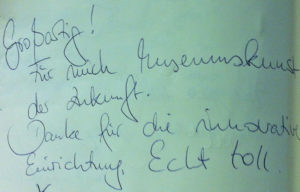 Großartig!
Für mich Museumskunst
der Zukunft.
Danke für die innovative
Einrichtung. Echt toll.